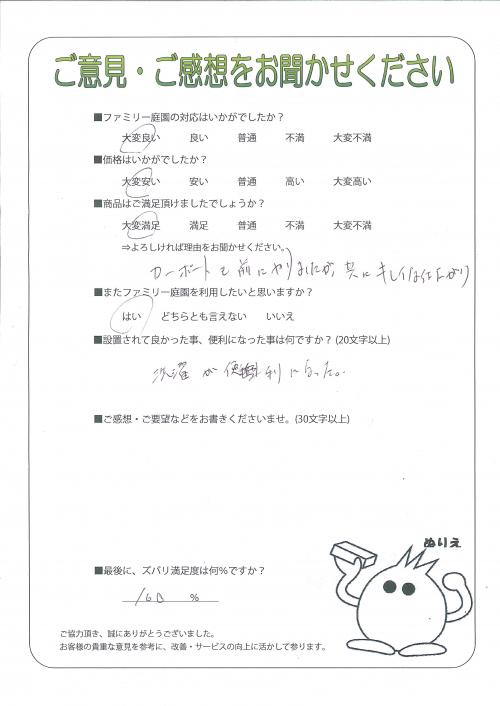 ご意見・ご感想をお聞かせください
■ファミリー庭園の対応はいかがでしたか？
大変良い 良い 普通 不満 大変不満
■価格はいかがでしたか？
大変安い 安い 普通 高い 大変高い
■商品はご満足頂けましたでしょうか？
大変満足 満足 普通 不満 大変不満
⇒よろしければ理由をお聞かせください。
カーポートも前にやりましたが、共にキレイな仕上がり
■またファミリー庭園を利用したいと思いますか？
はい どちらとも言えない いいえ
■設置されて良かった事、便利になった事は何ですか？(20文字以上)
洗濯が便利になった。
■ご感想・ご要望などをお書きくださいませ。(30文字以上)
ぬりえ
■最後に、ズバリ満足度は何％ですか？
100 ％
ご協力頂き、誠にありがとうございました。
お客様の貴重な意見を参考に、改善・サービスの向上に活かして参ります。